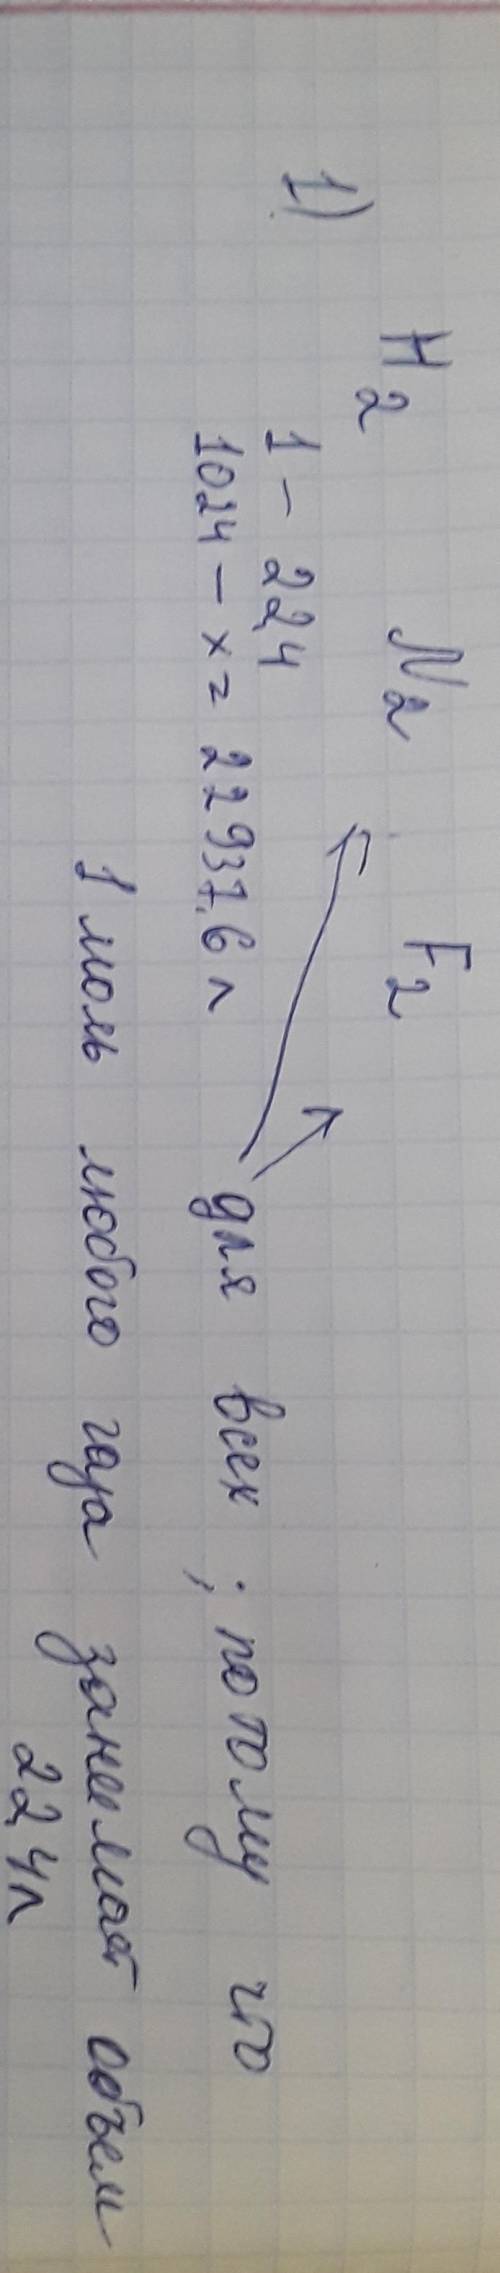 1) H2 N2 F2
1 - 22,4
1024 - x = 22937,6 л для всех; потому что
1 моль любого газа занимает объем
22,4 л